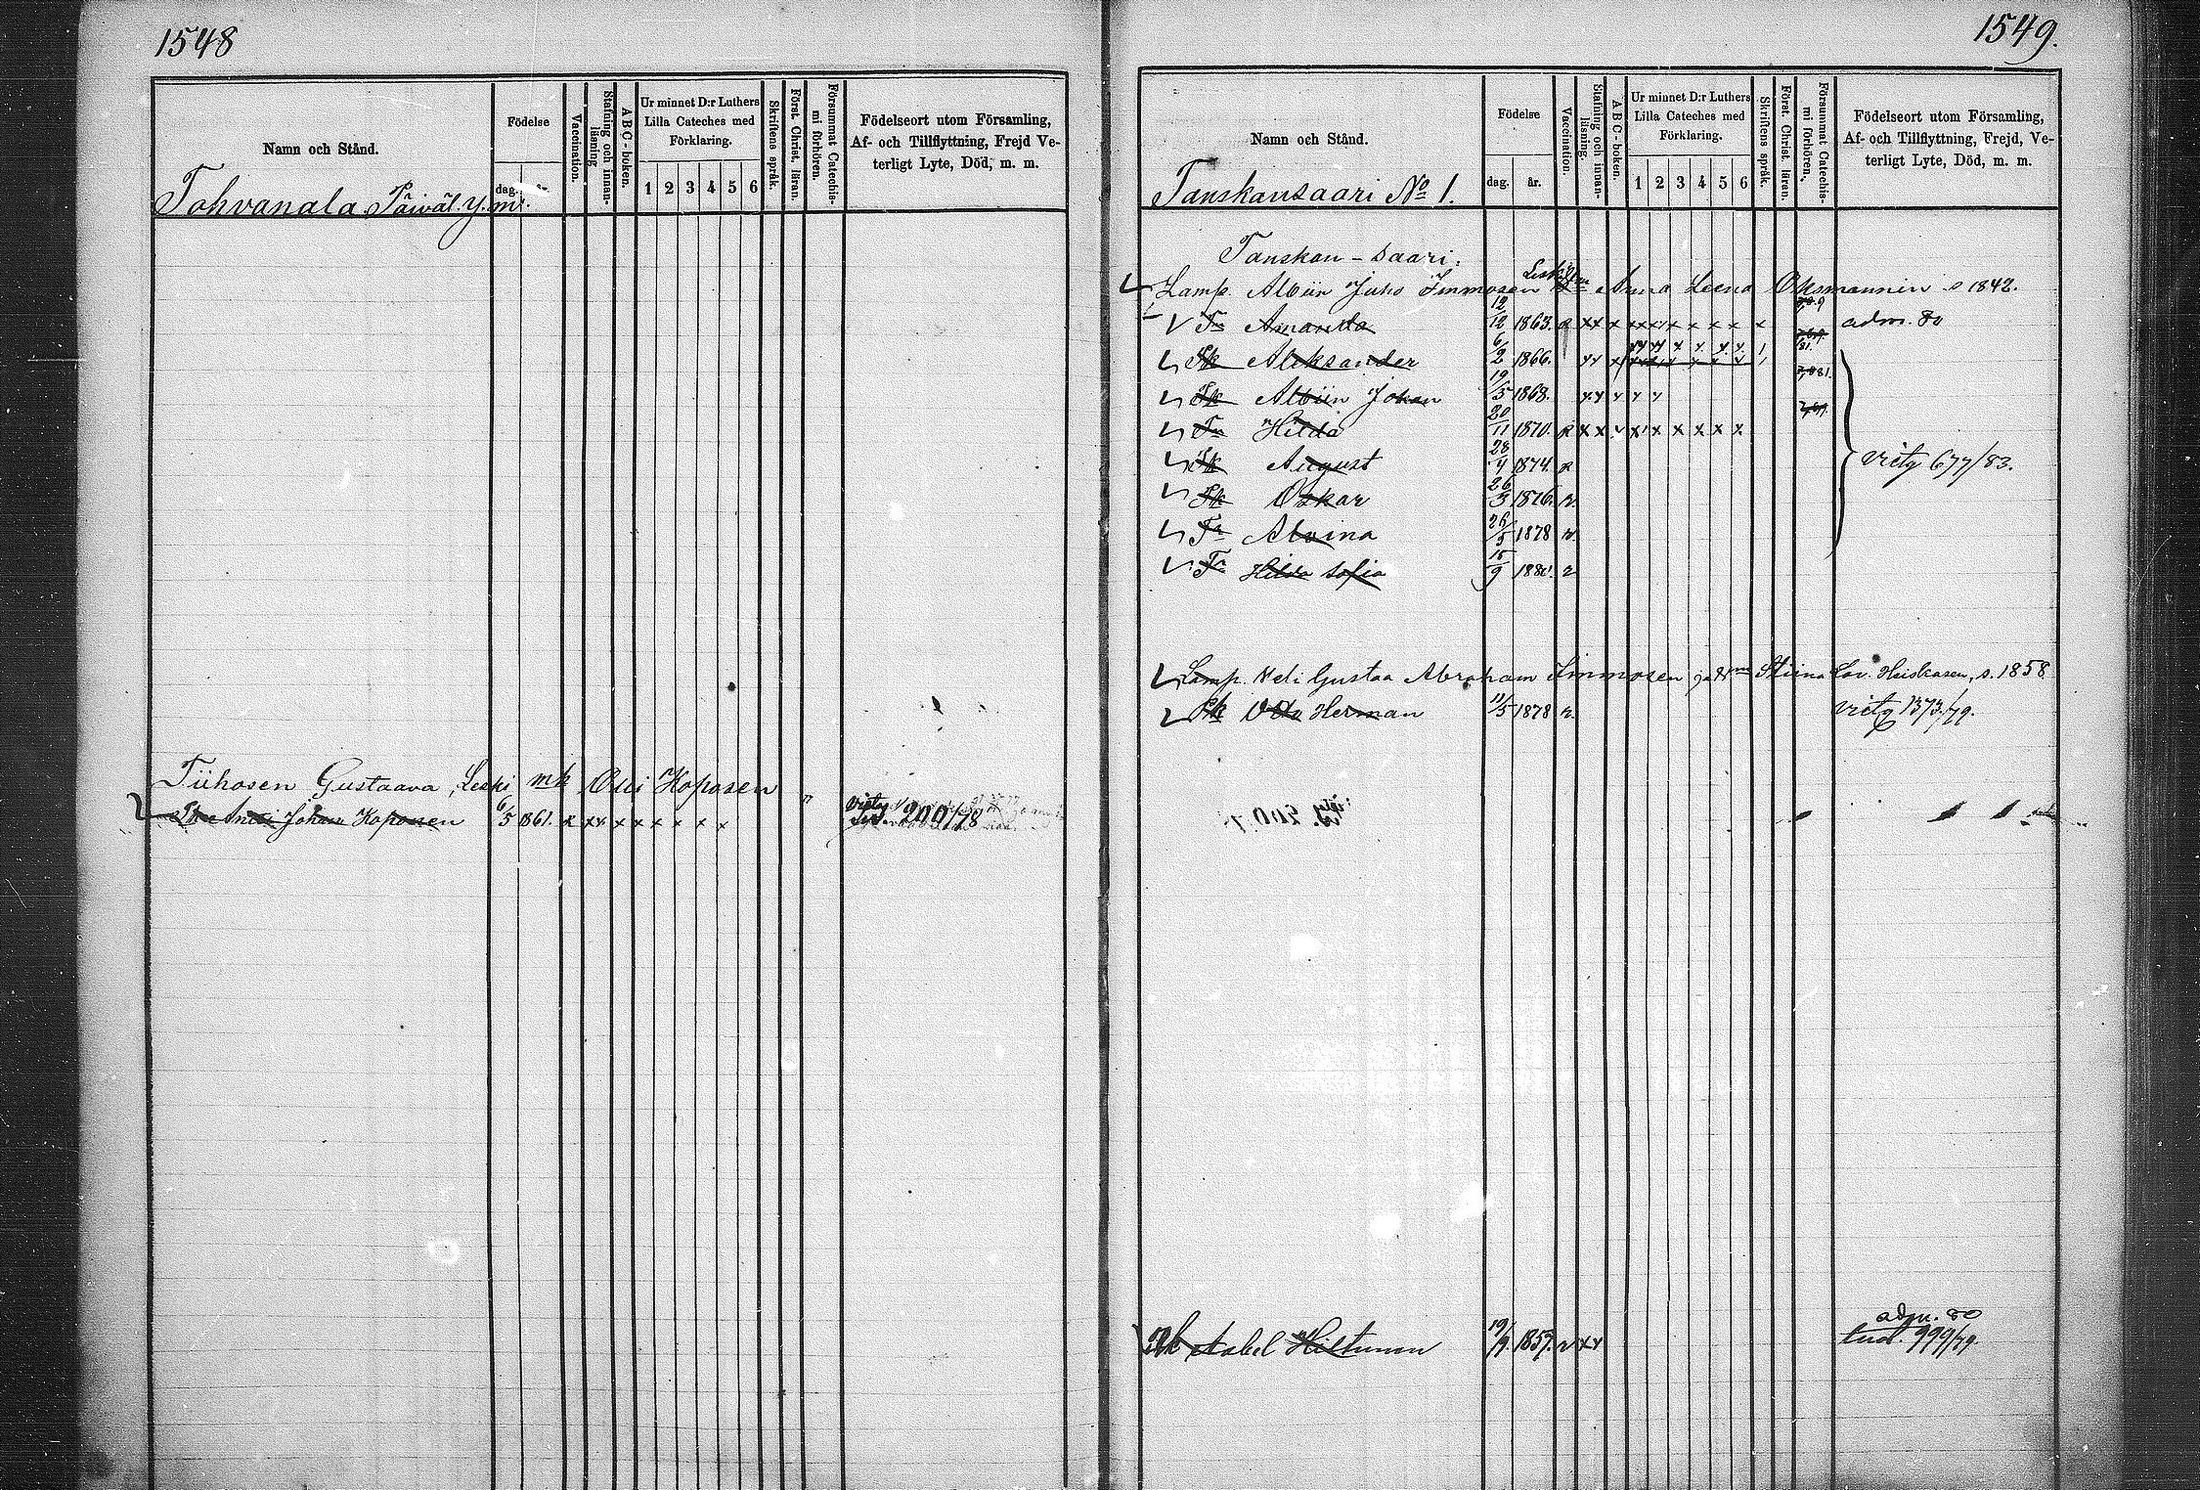 1548
Namn och Stånd.
Födelse
dag.
Vaccination.
Stafning och innan-
läsning
ABC-boken.
Ur minnet D:r Luthers
Lilla Cateches med
Förklaring.
1 2 3 4 5 6
Skriftens språk.
Först. Christ. läran.
Försummat Catechis-
mi förhören.
Födelseort utom Församling,
Af- och Tillflyttning, Frejd Ve-
terligt Lyte, Död, m. m.
Tohvanala Päiväl. y. m.
Tiihosen Gustaava, Leski mk Oui Koposen
Johan Koponen 6/5 1861. x xx x x x x x x 200/78
1549.
Namn och Stånd.
Födelse
dag. år.
Vaccination.
Stafning och innan-
läsning.
ABC-boken.
Ur minnet D:r Luthers
Lilla Cateches med
Förklaring.
1 2 3 4 5 6
Skriftens språk.
Först. Christ. läran.
Försummat Catechis-
mi förhören.
Födelseort utom Församling,
Af- och Tillflyttning, Frejd, Ve-
terligt Lyte, Död, m. m.
Tanskansaari No 1.
Tanskan-saari.
Lamp. Albiin Juho Immosen Leski Anna Leena Oksmannin s 1842.
Tr Amanda 12/12 1863. adm. 80
Pk Aleksander 6/2 1866.
Pk Albiin Johan 19/5 1868.
Tr Hilda 20/11 1870.
Pk August 28/4 1874.
Pk Oskar 26/3 1876.
vity 677/83.
Tr Alvina 26/5 1878
Tr Hilda Sofia 15/9 1880.
Lamp. Veli Gustaa Abraham Immosen ja Vmo Stiina Lov. Heiskasen, s. 1858
Pk Otto Herman 11/5 1878 vity 1373/79.
adm. 80
Abel Hiltunen 19/9. 1857. 999/79.